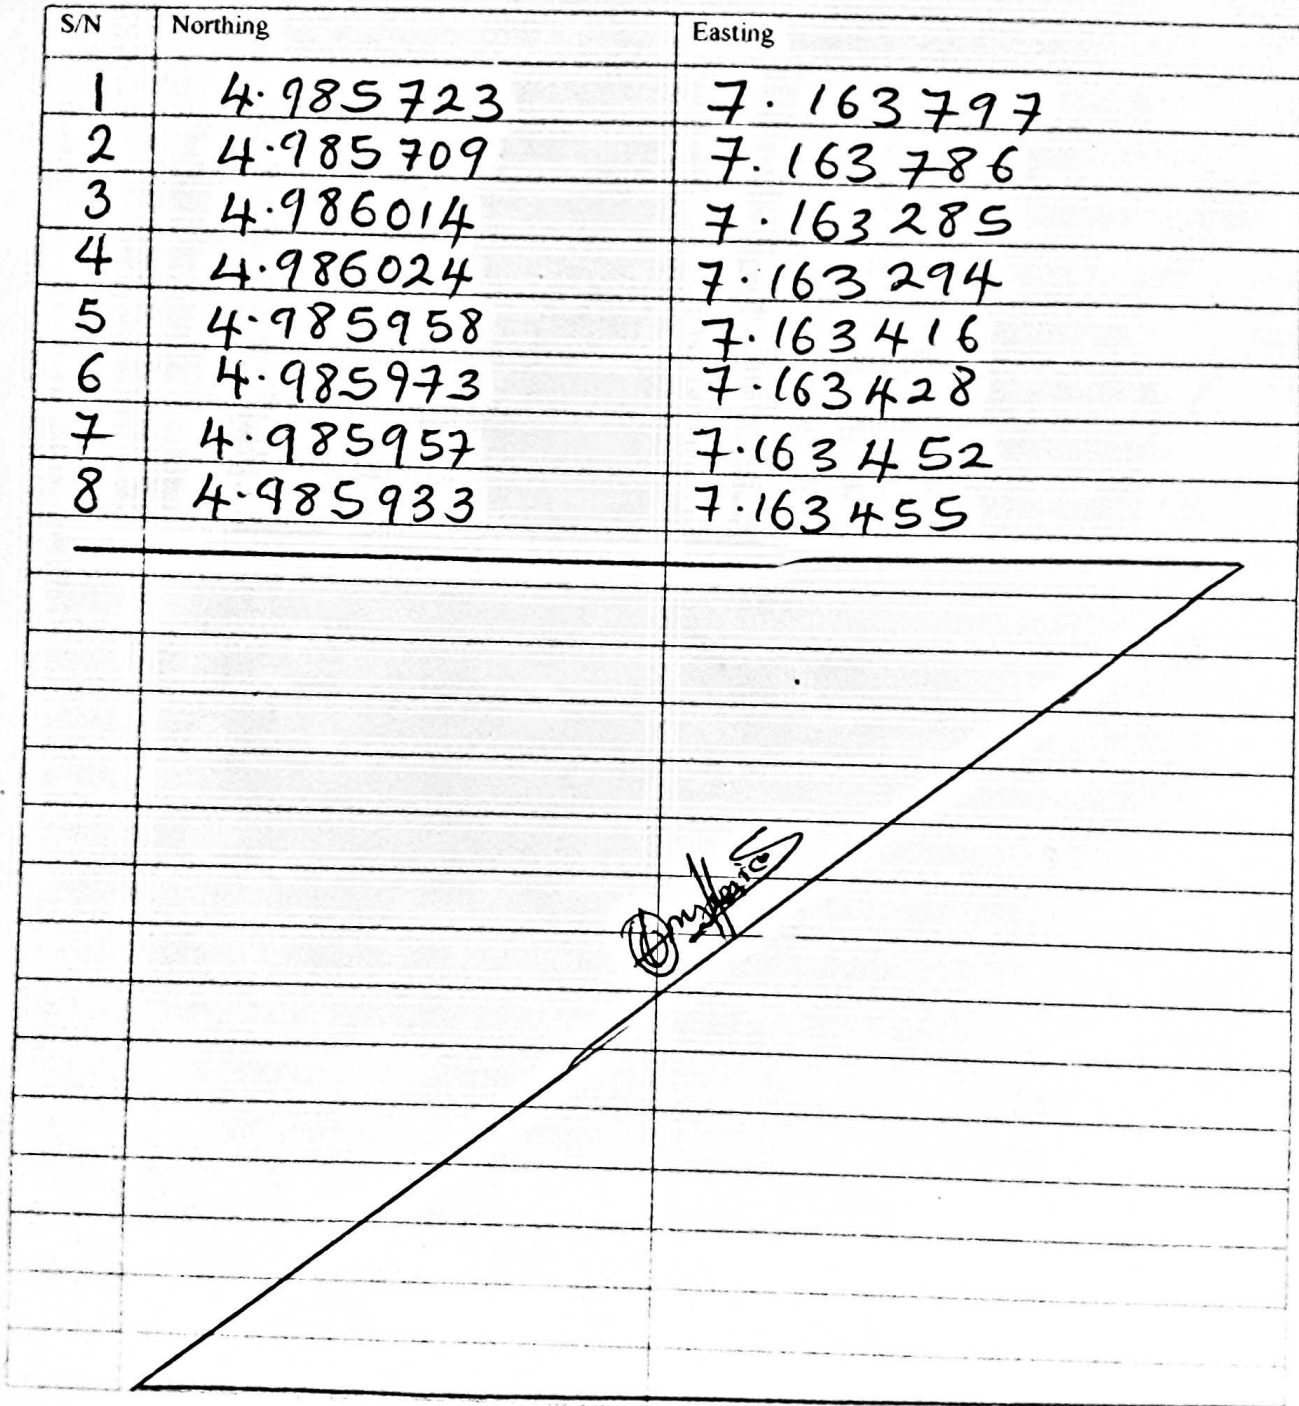 S/N Northing Easting
1 4.985723 7.163797
2 4.985709 7.163786
3 4.986014 7.163285
4 4.986024 7.163294
5 4.985958 7.163416
6 4.985973 7.163428
7 4.985957 7.163452
8 4.985933 7.163455